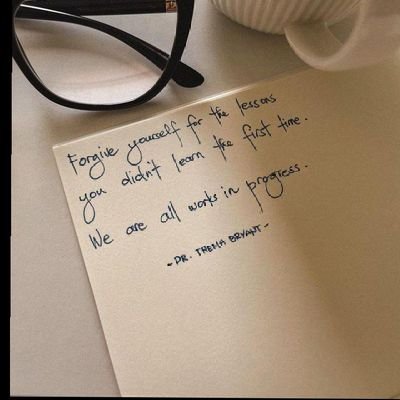 Forgive yourself for the lessons
you didn't learn the first time.
We are all works in progress.
- DR. THEMA BRYANT -